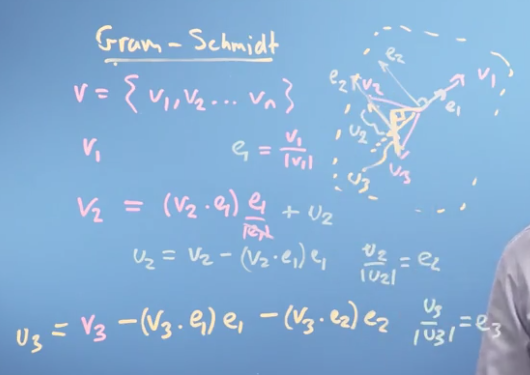 Gram-Schmidt
V = { v₁, v₂ ... vₙ }
v₁ e₁ = v₁/|v₁|
v₂ = (v₂ · e₁) e₁/|e₁| + u₂
u₂ = v₂ - (v₂ · e₁) e₁ u₂/|u₂| = e₂
u₃ = v₃ - (v₃ · e₁) e₁ - (v₃ · e₂) e₂ u₃/|u₃| = e₃
e₂
e₂ v₂ v₁
e₁
u₂
u₃ v₃